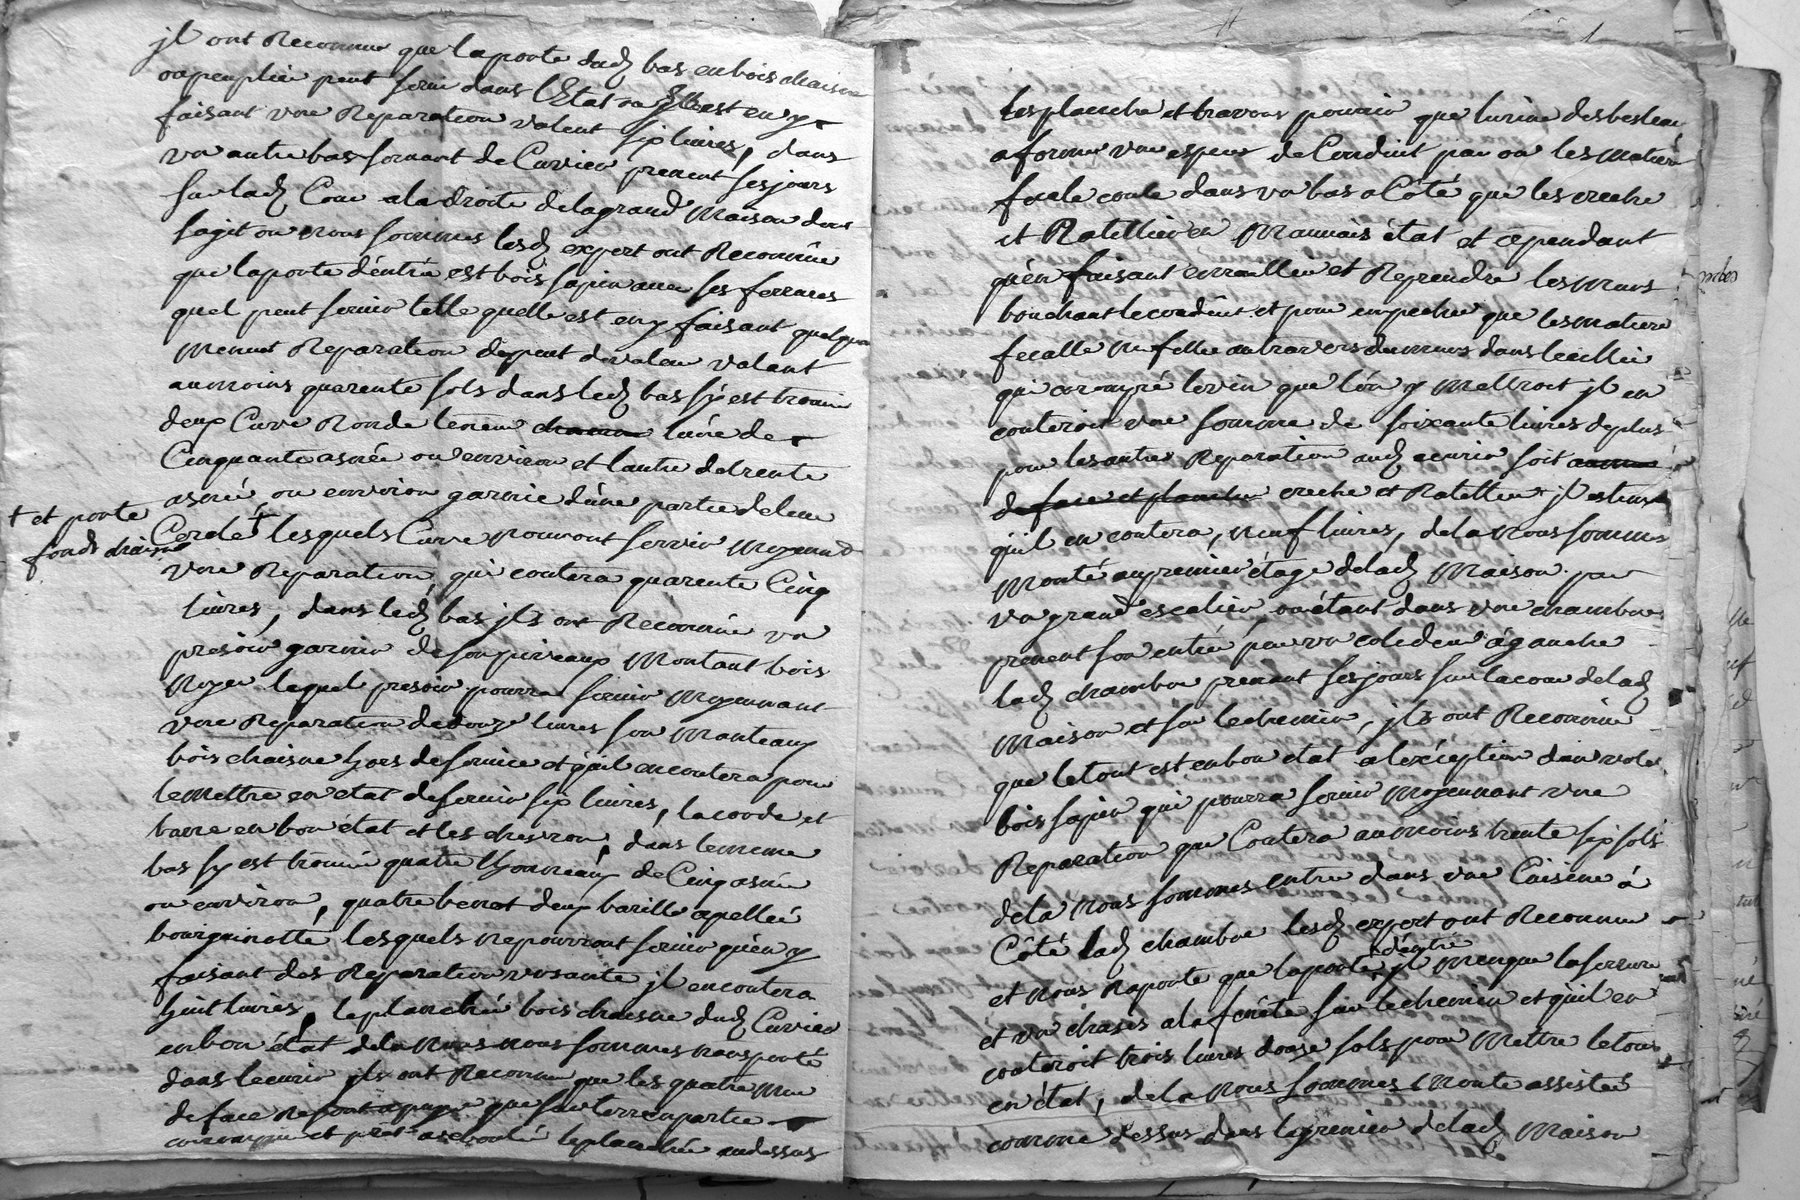 jl ont Reconnu que laporte dud bas en bois chaisne
oupeuplier peut servir dans l'Etat ou Elle est en y
faisant une Reparation valant six livres, dans
un autre bas servant de Cuvier prenent ses jours
sur lad Cour a la droite delagrand Maison dont
sagit ou nous sommes lesd expert ont Reconnüe
que laporte d'éntrée est bois sapin avec ses ferrures
quel peut servir telle quelle est en y faisant quelque
Menuet Reparation devaleur valant
aumoins quarente sols dans led bas s'y est trouvé
deux Cuve Ronde tenent l'une de
Cinquante asnée ou environ et l'autre detrente
asnée ou environ garnie d'une partie deleur
† et porte
fonds chaisne
Cercle † lesquels Cuve pouront servir Moyenent
une Reparation, qui coutera quarente Cinq
livres, dans led bas jls ont Reconnüe un
presoir garnie de son Montant bois
Noyer lequel presoir pourra servir Moyennant
une Reparation dedouze livres son Manteaux
bois chaisne hors deservice et qu'il encoutera pour
lemettre en etat deservir six livres, lacorde et
barre en bon état et les chevron, dans lememe
bas s'y est trouvée quatre thonneaux de Cinq asnée
ou environ, quatre bennot deux barille apellée
bourguinotte lesquels nepourront servir qu'en y
faisant des Reparation jl encoutera
huit livres, leplanchée bois chaisne dud Cuvier
enbon état dela nous sommes transporté
dans lecurie jls ont Reconnu que les quatre mur
deface que sur terre en partie
et prêt leplanchée audessus
les planche et travons pourrie que lurine desbesteaux
aformé une espece de Conduit par ou les matiere
fecale coule dans un bas a Côté que les creche
et Ratellier en Mauvais état et cependant
qu'en faisant et Reprendre les murs
bouchant leconduit et pour enpecher que les matiere
fecalle ne filtre autravers dumurs dans lecellier
qui le vin que l'on y Mettroit jl en
couteroit une somme de soixante livres deplus
pour lesautre Reparation aud ecurie soit
de face et plancher creche et Ratellier jl estime
qu'il en coutera, neuf livres, de la nous sommes
Monté aupremier étage delad Maison par
un grand escalier ou étant dans une chambre
prenent son entrée par un colidem à gauche
lad chambre prenant ses jours sur lacour delad
Maison et sur le chemin, jls ont Reconnüe
que letout est enbon état a lexéption d'un volet
bois sapin qui pourra servir Moyennant une
Reparation que Coutera aumoins trente six sols
dela nous sommes entre dans une Cuisine à
Côté lad chambre lesd expert ont Reconnu
et nous raporte que laporte d'éntré jl menque laserrure
et un chasis a la fenête sur lechemin et qu'il en
couteroit trois livres douse sols pour Mettre letout
en état, de la nous sommes Monte assistée
comme dessus dans legrenier delad Maison